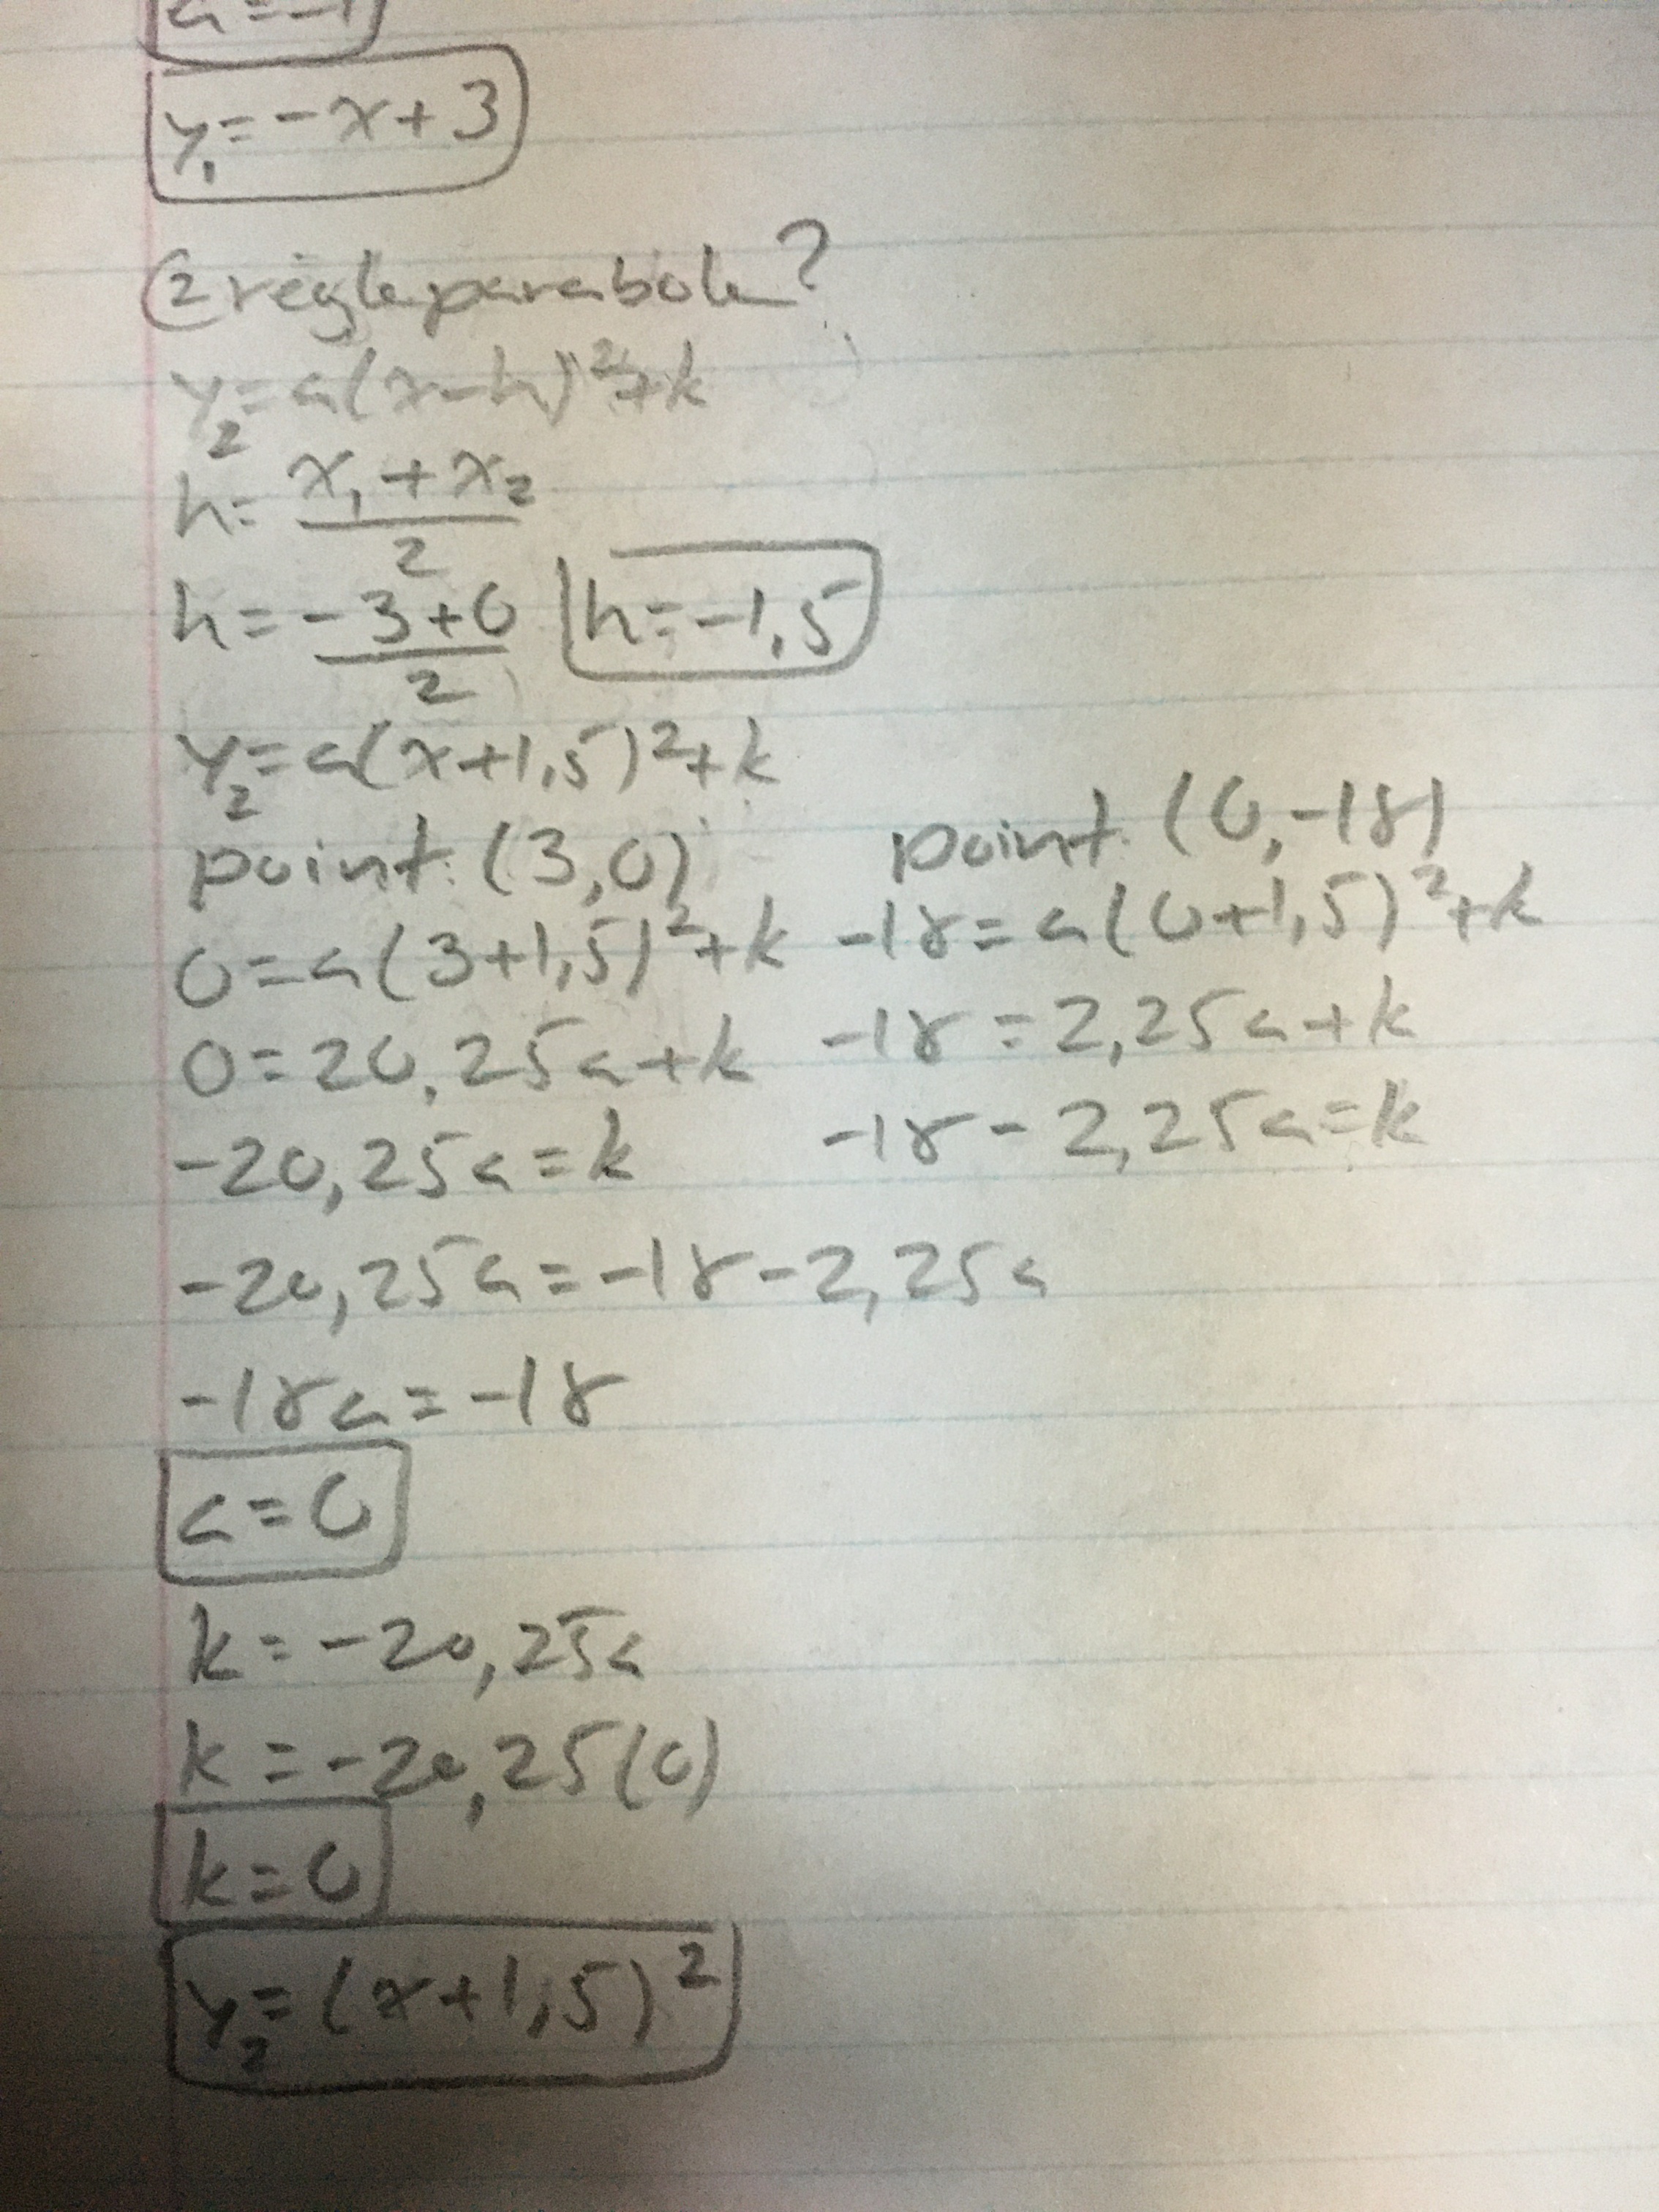 a = -1
y₁ = -x + 3
② règle parabole ?
y₂ = a(x-h)² + k
h = (x₁ + x₂)/2
h = (-3+0)/2   h = -1,5
y₂ = a(x+1,5)² + k
point: (3,0)   point: (0,-18)
0 = a(3+1,5)² + k   -18 = a(0+1,5)² + k
0 = 20,25a + k   -18 = 2,25a + k
-20,25a = k   -18 - 2,25a = k
-20,25a = -18 - 2,25a
-18a = -18
a = 0
k = -20,25a
k = -20,25(0)
k = 0
y₂ = (x+1,5)²